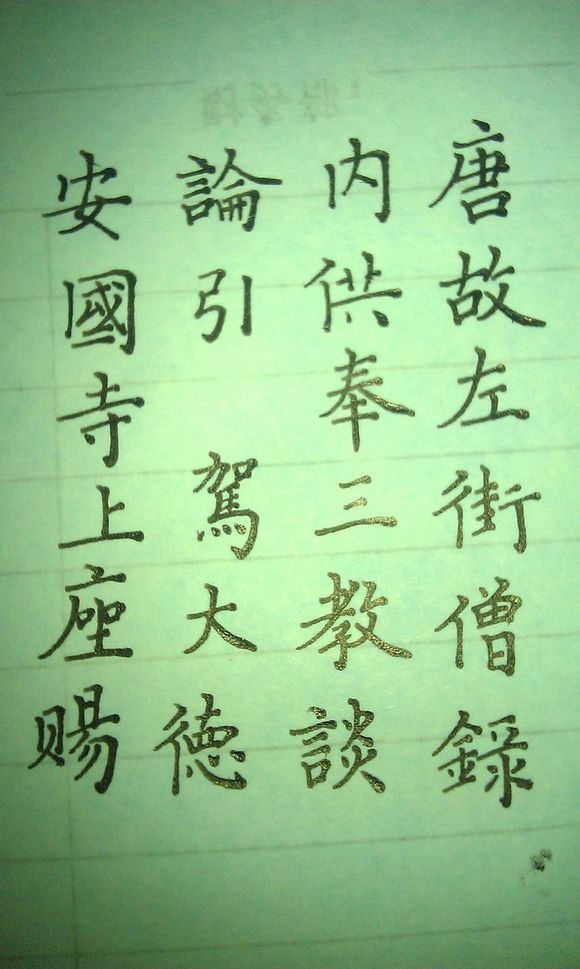 唐故左街僧録
内供奉三教談
論引 駕大德
安國寺上座赐